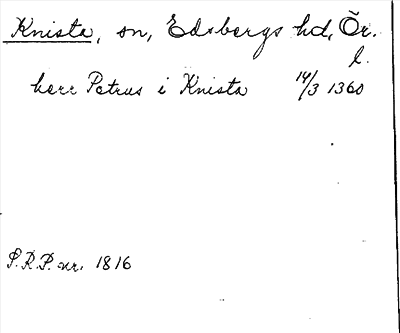 Knista, sn, Edsbergs hd, Ör.
l.
herr Petrus i Knista 14/3 1360
S.R.P. nr. 1816